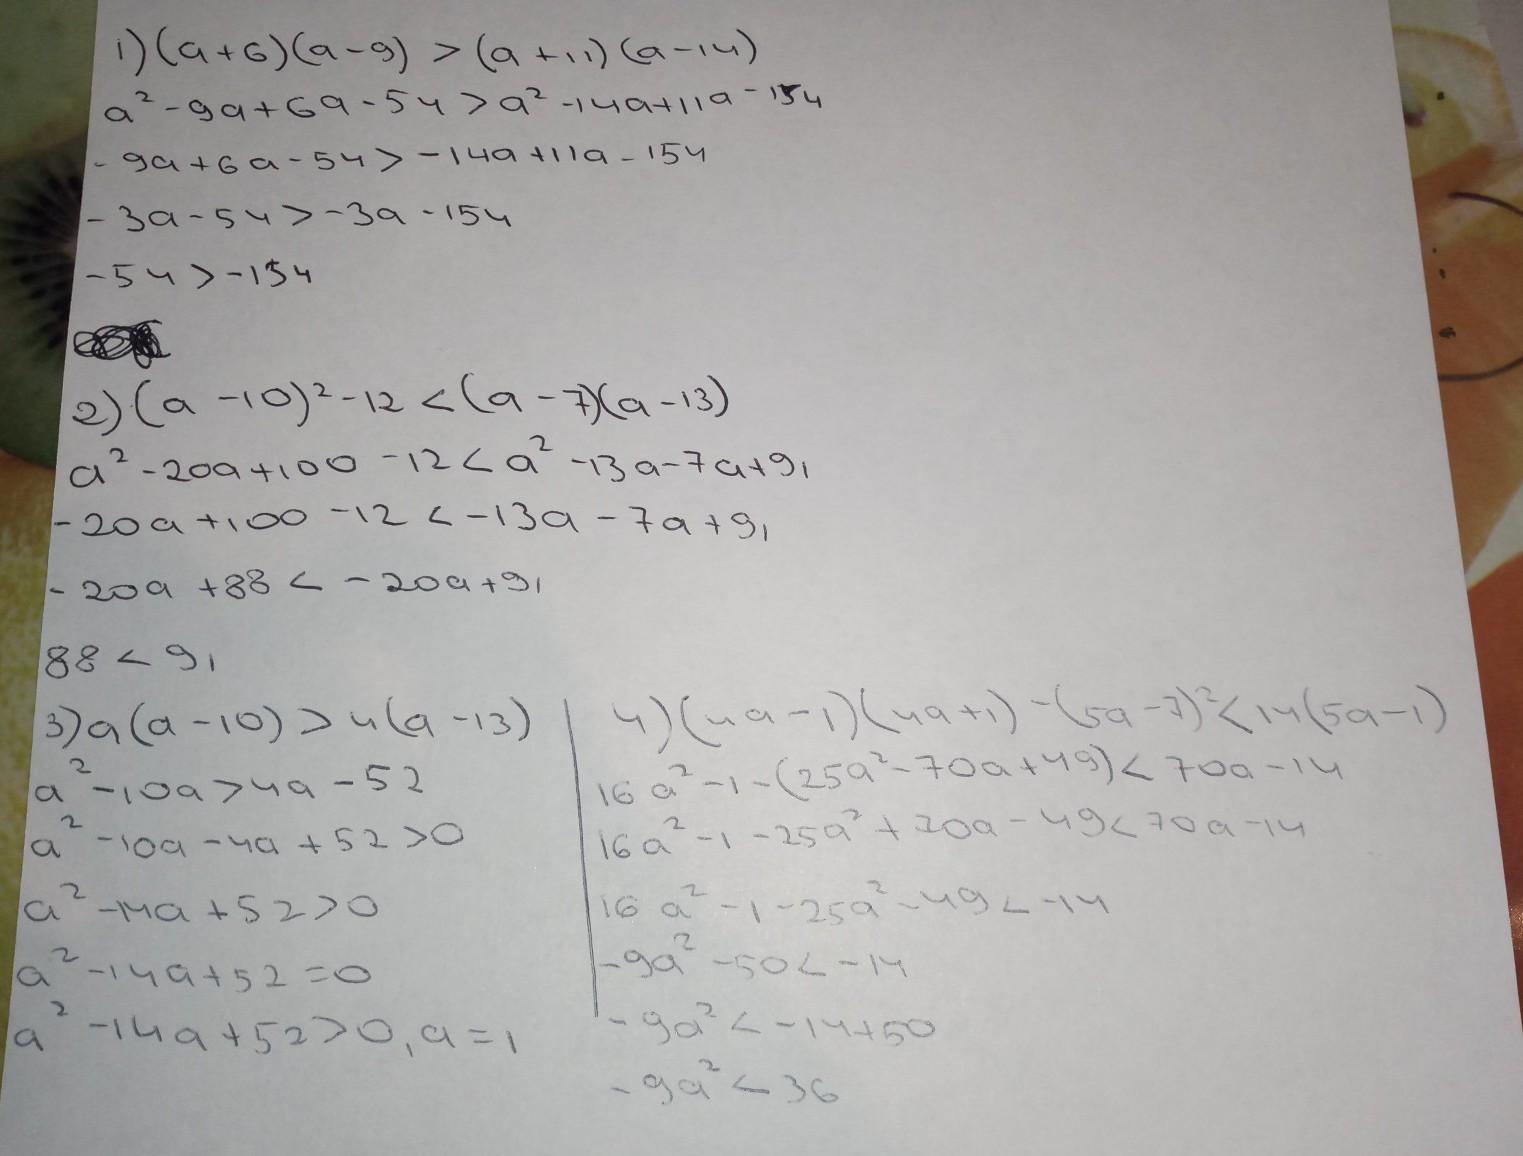 1) (a+6)(a-9) > (a+11)(a-14)
a² -9a+6a-54>a² -14a+11a-154
-9a+6a-54>-14a+11a-154
-3a-54>-3a-154
-54>-154
2) (a-10)²-12<(a-7)(a-13)
a²-20a+100-12<a²-13a-7a+91
-20a+100-12<-13a-7a+91
-20a+88<-20a+91
88<91
3) a(a-10)>4(a-13)
a²-10a>4a-52
a²-10a-4a+52>0
a²-14a+52>0
a²-14a+52=0
a²-14a+52>0, a=1
4) (4a-1)(4a+1)-(5a-7)²<14(5a-1)
16a²-1-(25a²-70a+49)<70a-14
16a²-1-25a²+70a-49<70a-14
16a²-1-25a²-49<-14
-9a²-50<-14
-9a²<-14+50
-9a²<36